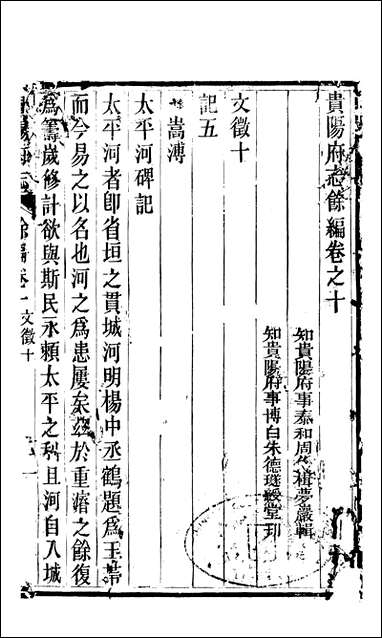 貴陽府志餘編卷之十
知貴陽府事泰和周作楫夢巖輯
知貴陽府事博白朱德璲綬堂刊
文徵十
記五
嵩溥
太平河碑記
太平河者卽省垣之貫城河明楊中丞鶴題爲玉帶
而今易之以名也河之爲患屢矣兹於重濬之餘復
爲籌歲修計欲與斯民永賴太平之利且河自入城
餘編卷十文徵十